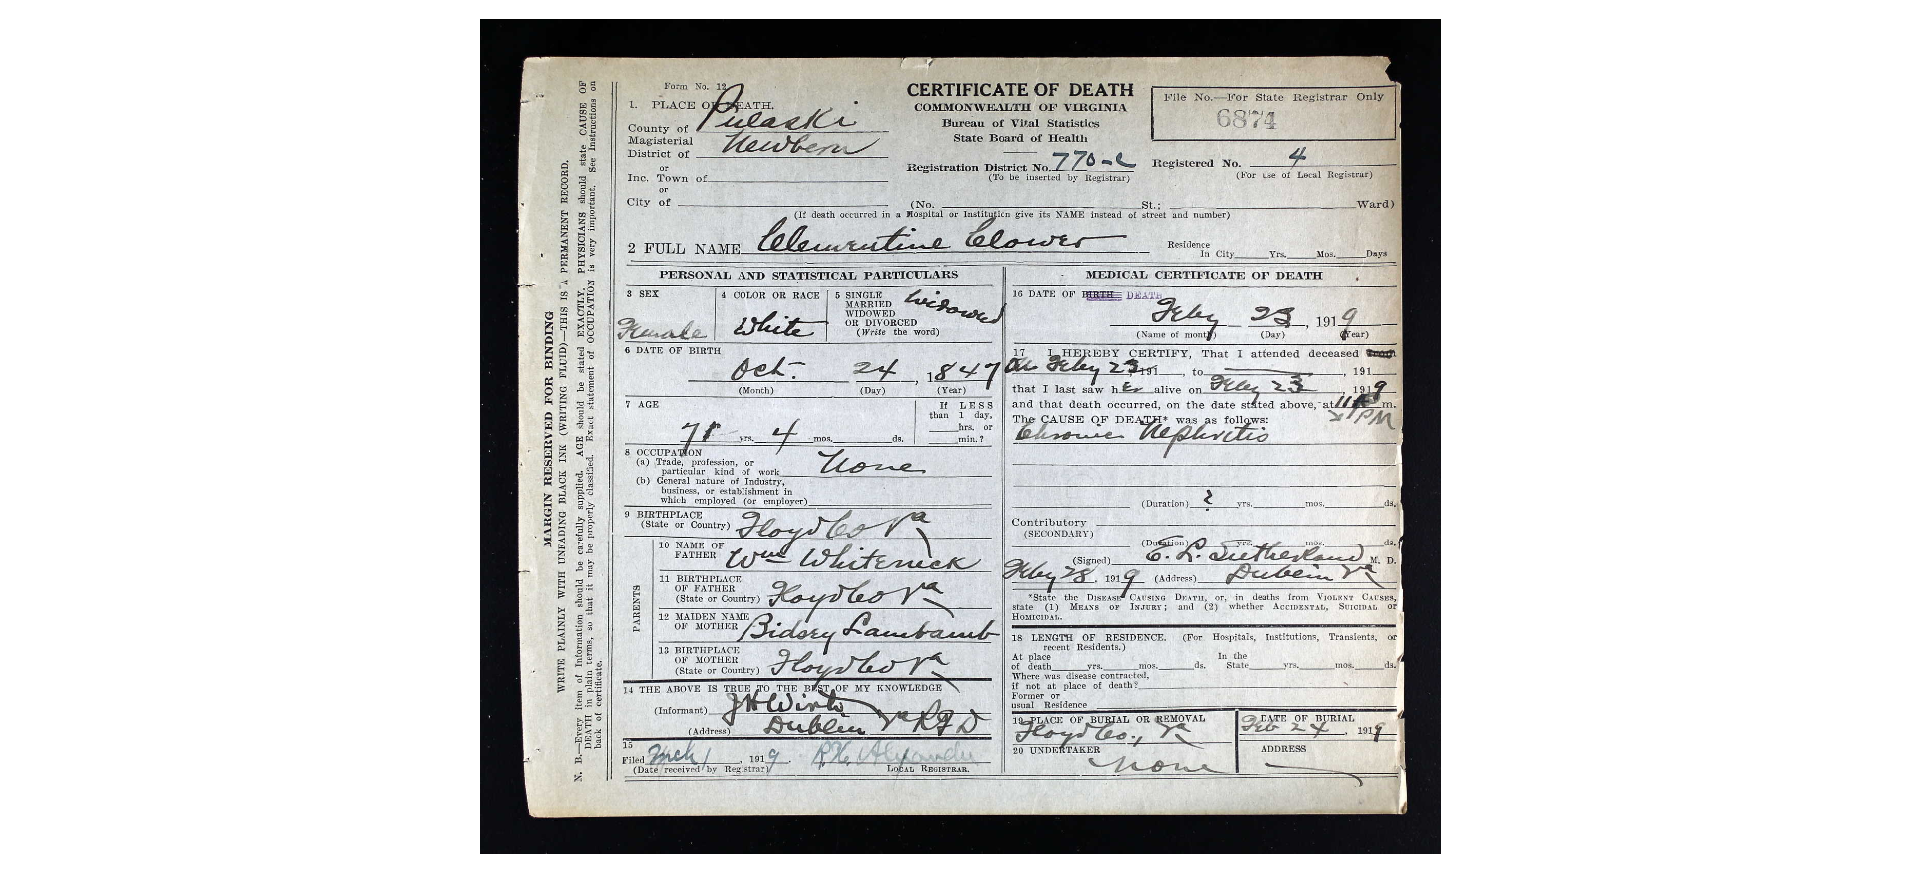 Form No. 12
CERTIFICATE OF DEATH
COMMONWEALTH OF VIRGINIA
Bureau of Vital Statistics
State Board of Health
File No.—For State Registrar Only
6874
1. PLACE OF DEATH.
County of Pulaski
Magisterial
District of Newbern
or
Inc. Town of
or
City of
Registration District No. 770-c
(To be inserted by Registrar)
Registered No. 4
(For use of Local Registrar)
(No. St.; Ward)
(If death occurred in a Hospital or Institution give its NAME instead of street and number)
2 FULL NAME Clementine Clower
Residence
In City Yrs. Mos. Days
PERSONAL AND STATISTICAL PARTICULARS
3 SEX
Female
4 COLOR OR RACE
White
5 SINGLE
MARRIED
WIDOWED
OR DIVORCED
(Write the word)
Widowed
6 DATE OF BIRTH
Oct. 24, 1847
(Month) (Day) (Year)
7 AGE
71 yrs. 4 mos. ds.
If LESS
than 1 day,
hrs. or
min.?
8 OCCUPATION
(a) Trade, profession, or
particular kind of work None
(b) General nature of Industry,
business, or establishment in
which employed (or employer)
9 BIRTHPLACE
(State or Country) Floyd Co Va
PARENTS
10 NAME OF
FATHER Wm Whiteneck
11 BIRTHPLACE
OF FATHER
(State or Country) Floyd Co Va
12 MAIDEN NAME
OF MOTHER Bidsey
13 BIRTHPLACE
OF MOTHER
(State or Country) Floyd Co Va
14 THE ABOVE IS TRUE TO THE BEST OF MY KNOWLEDGE
(Informant) J H
(Address) Dublin Va RFD
15
Filed Mch 1, 1919 R. K. Alexander
(Date received by Registrar) LOCAL REGISTRAR.
MEDICAL CERTIFICATE OF DEATH
16 DATE OF BIRTH DEATH
Feby 23, 1919
(Name of month) (Day) (Year)
17 I HEREBY CERTIFY, That I attended deceased from
On Feby 23, 191 , to , 191
that I last saw her alive on Feby 23 1919
and that death occurred, on the date stated above, at 11 m.
11 PM
The CAUSE OF DEATH* was as follows:
Chronic Nephritis
(Duration) ? yrs. mos. ds.
Contributory
(SECONDARY)
(Duration) yrs. mos. ds.
(Signed) E. L. Sutherland M. D.
Feby 28, 1919 (Address) Dublin Va
*State the DISEASE CAUSING DEATH, or, in deaths from VIOLENT CAUSES,
state (1) MEANS OF INJURY; and (2) whether ACCIDENTAL, SUICIDAL or
HOMICIDAL.
18 LENGTH OF RESIDENCE. (For Hospitals, Institutions, Transients, or
recent Residents.)
At place In the
of death yrs. mos. ds. State yrs. mos. ds.
Where was disease contracted,
if not at place of death?
Former or
usual Residence
19 PLACE OF BURIAL OR REMOVAL
Floyd Co., Va
DATE OF BURIAL
Feb 24, 1919
20 UNDERTAKER
None
ADDRESS
MARGIN RESERVED FOR BINDING
WRITE PLAINLY WITH UNFADING BLACK INK (WRITING FLUID)—THIS IS A PERMANENT RECORD.
N. B.—Every item of Information should be carefully supplied. AGE should be stated EXACTLY. PHYSICIANS should state CAUSE OF
DEATH in plain terms, so that it may be properly classified. Exact statement of OCCUPATION is very important. See Instructions on
back of certificate.